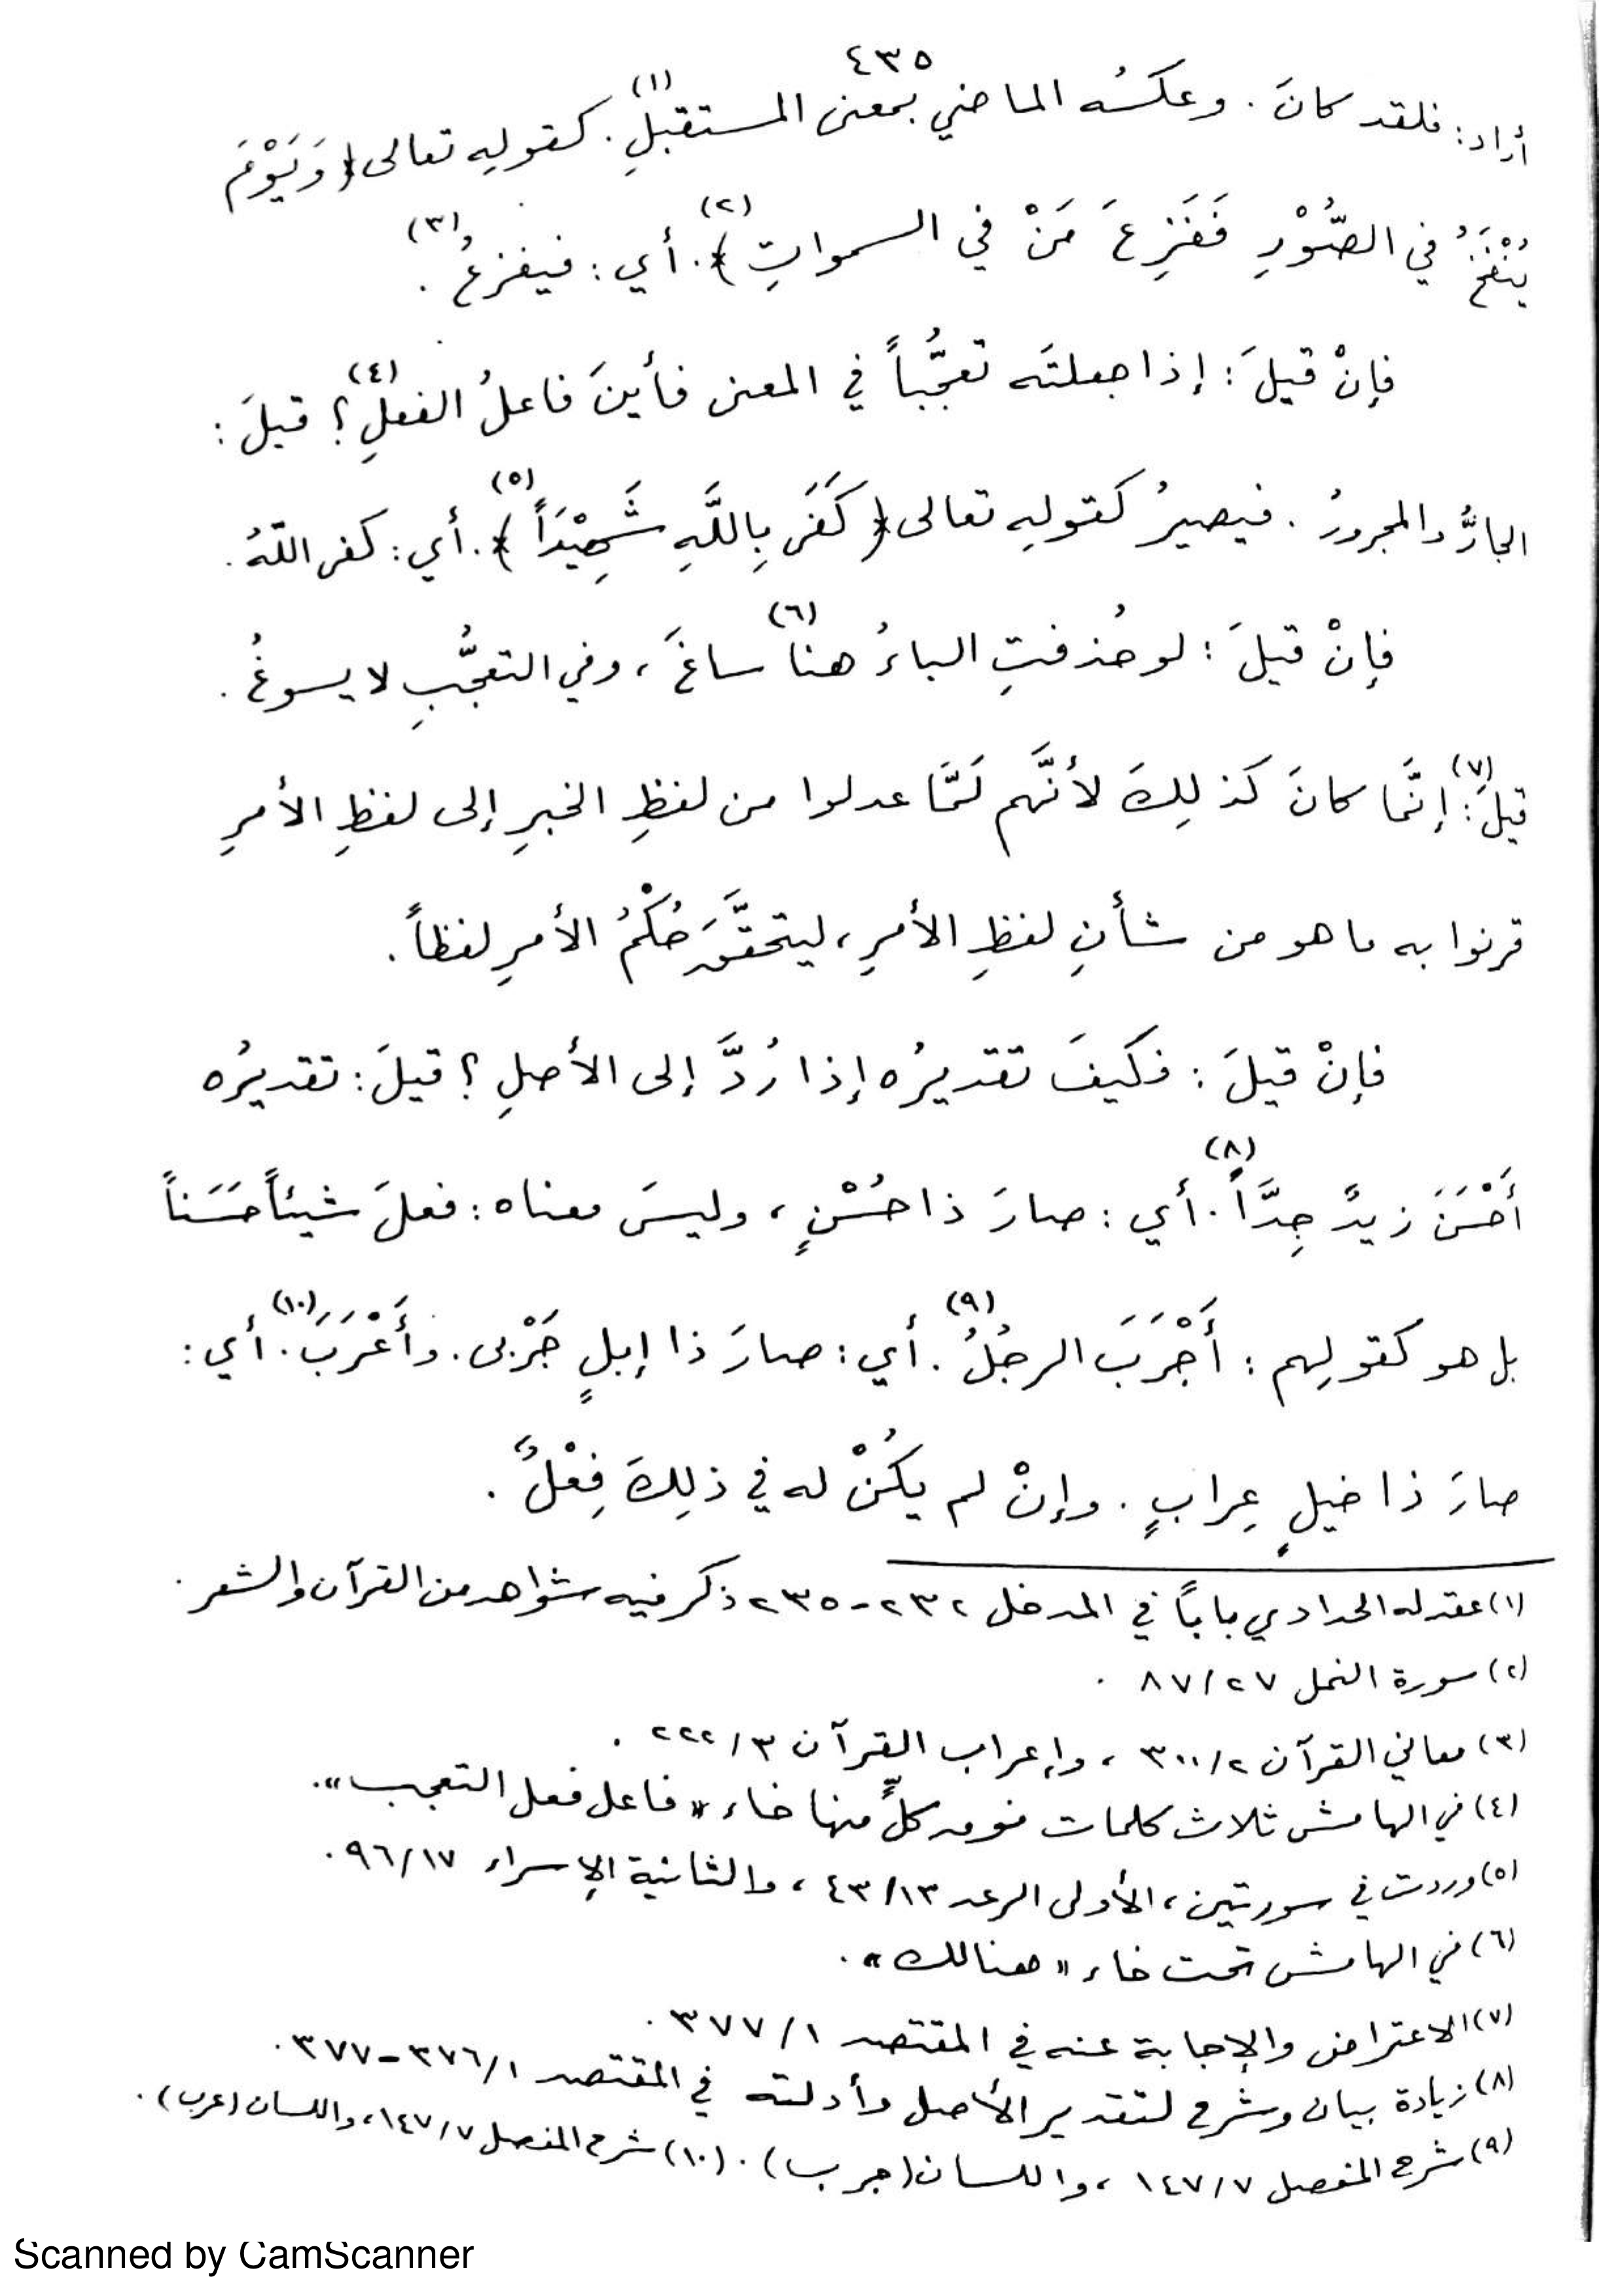 ٤٣٥
أراد: فلقد كانَ . وعكسُه الماضي بمعنى المستقبلِ(١). كقولِهِ تعالى ﴿ وَيَوْمَ
يُنْفَخُ في الصُّوْرِ فَفَزِعَ مَنْ في السمواتِ ﴾(٢). أي : فيفزعُ(٣) .
فإنْ قيلَ : إذا جعلتَه تعجُّباً في المعنى فأينَ فاعلُ الفعلِ(٤) ؟ قيلَ :
الجارُّ والمجرورُ . فيصيرُ كقولِهِ تعالى ﴿ كَفَى بِاللَّهِ شَهِيْدَاً ﴾(٥). أي : كفى اللهُ .
فإنْ قيلَ : لو حُذفتِ الباءُ هنا(٦) ساغَ ، وفي التعجُّبِ لا يسوغُ .
قيلَ(٧) : إنَّما كانَ كذلِكَ لأنَّهم لَمَّا عدلوا من لفظِ الخبرِ إلى لفظِ الأمرِ
قرنوا به ما هو من شأنِ لفظِ الأمرِ ، ليتحقَّقَ حُكْمُ الأمرِ لفظاً .
فإنْ قيلَ : فكيفَ تقديرُه إذا رُدَّ إلى الأصلِ ؟ قيلَ : تقديرُه
أَحْسَنَ زيدٌ جِدَّاً(٨) . أي : صارَ ذا حُسْنٍ ، وليسَ معناه : فعلَ شيئاً حَسَنَاً
بل هو كقولِهم : أَجْرَبَ الرجُلُ(٩) . أي : صارَ ذا إبلٍ جَرْبى . وأَعْرَبَ(١٠) . أي :
صارَ ذا خيلٍ عِرابٍ . وإنْ لم يكُنْ له في ذلِكَ فِعْلٌ .
(١) عقد له الحدادي باباً في المدخل ٢٣٢-٢٣٥ ذكر فيه شواهد من القرآن والشعر .
(٢) سورة النمل ٨٧/٢٧ .
(٣) معاني القرآن ٣٠٠/٢ ، وإعراب القرآن ٢٢٢/٣ .
(٤) في الهامش ثلاث كلمات فوق كلٍّ منها خاء « فاعل فعل التعجب » .
(٥) وردت في سورتين ، الأولى الرعد ٤٣/١٣ ، والثانية الإسراء ٩٦/١٧ .
(٦) في الهامش تحت خاء « هنالك » .
(٧) الاعتراض والإجابة عنه في المقتصد ٣٧٧/١ .
(٨) زيادة بيان وشرح لتقدير الأصل وأدلته في المقتصد ٣٧٦/١-٣٧٧ .
(٩) شرح المفصل ١٤٧/٧ ، واللسان (جرب) . (١٠) شرح المفصل ١٤٧/٧ ، واللسان (عرب) .
Scanned by CamScanner